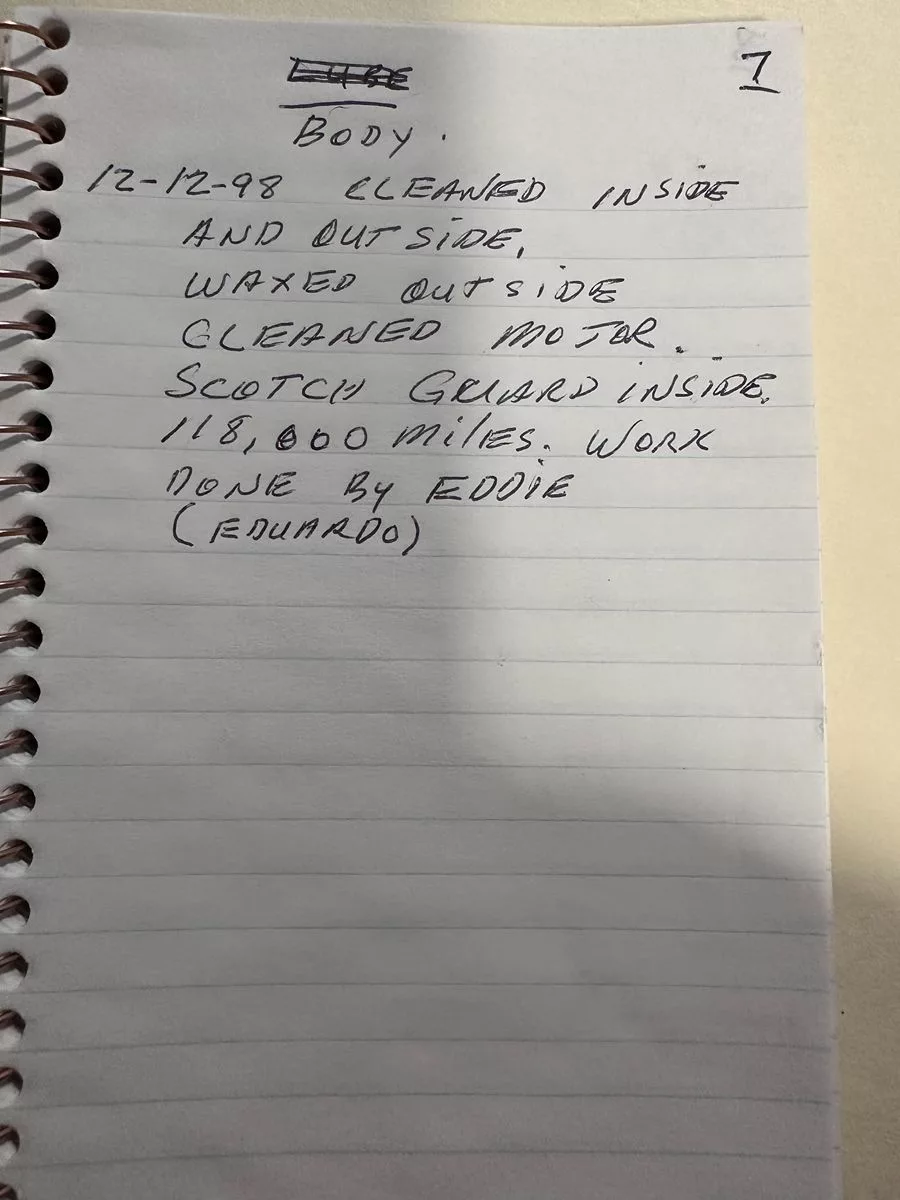 7
LUBE
BODY.
12-12-98 CLEANED INSIDE
AND OUTSIDE,
WAXED OUTSIDE
CLEANED MOTOR.
SCOTCH GUARD INSIDE.
118,000 MILES. WORK
DONE BY EDDIE
(EDUARDO)